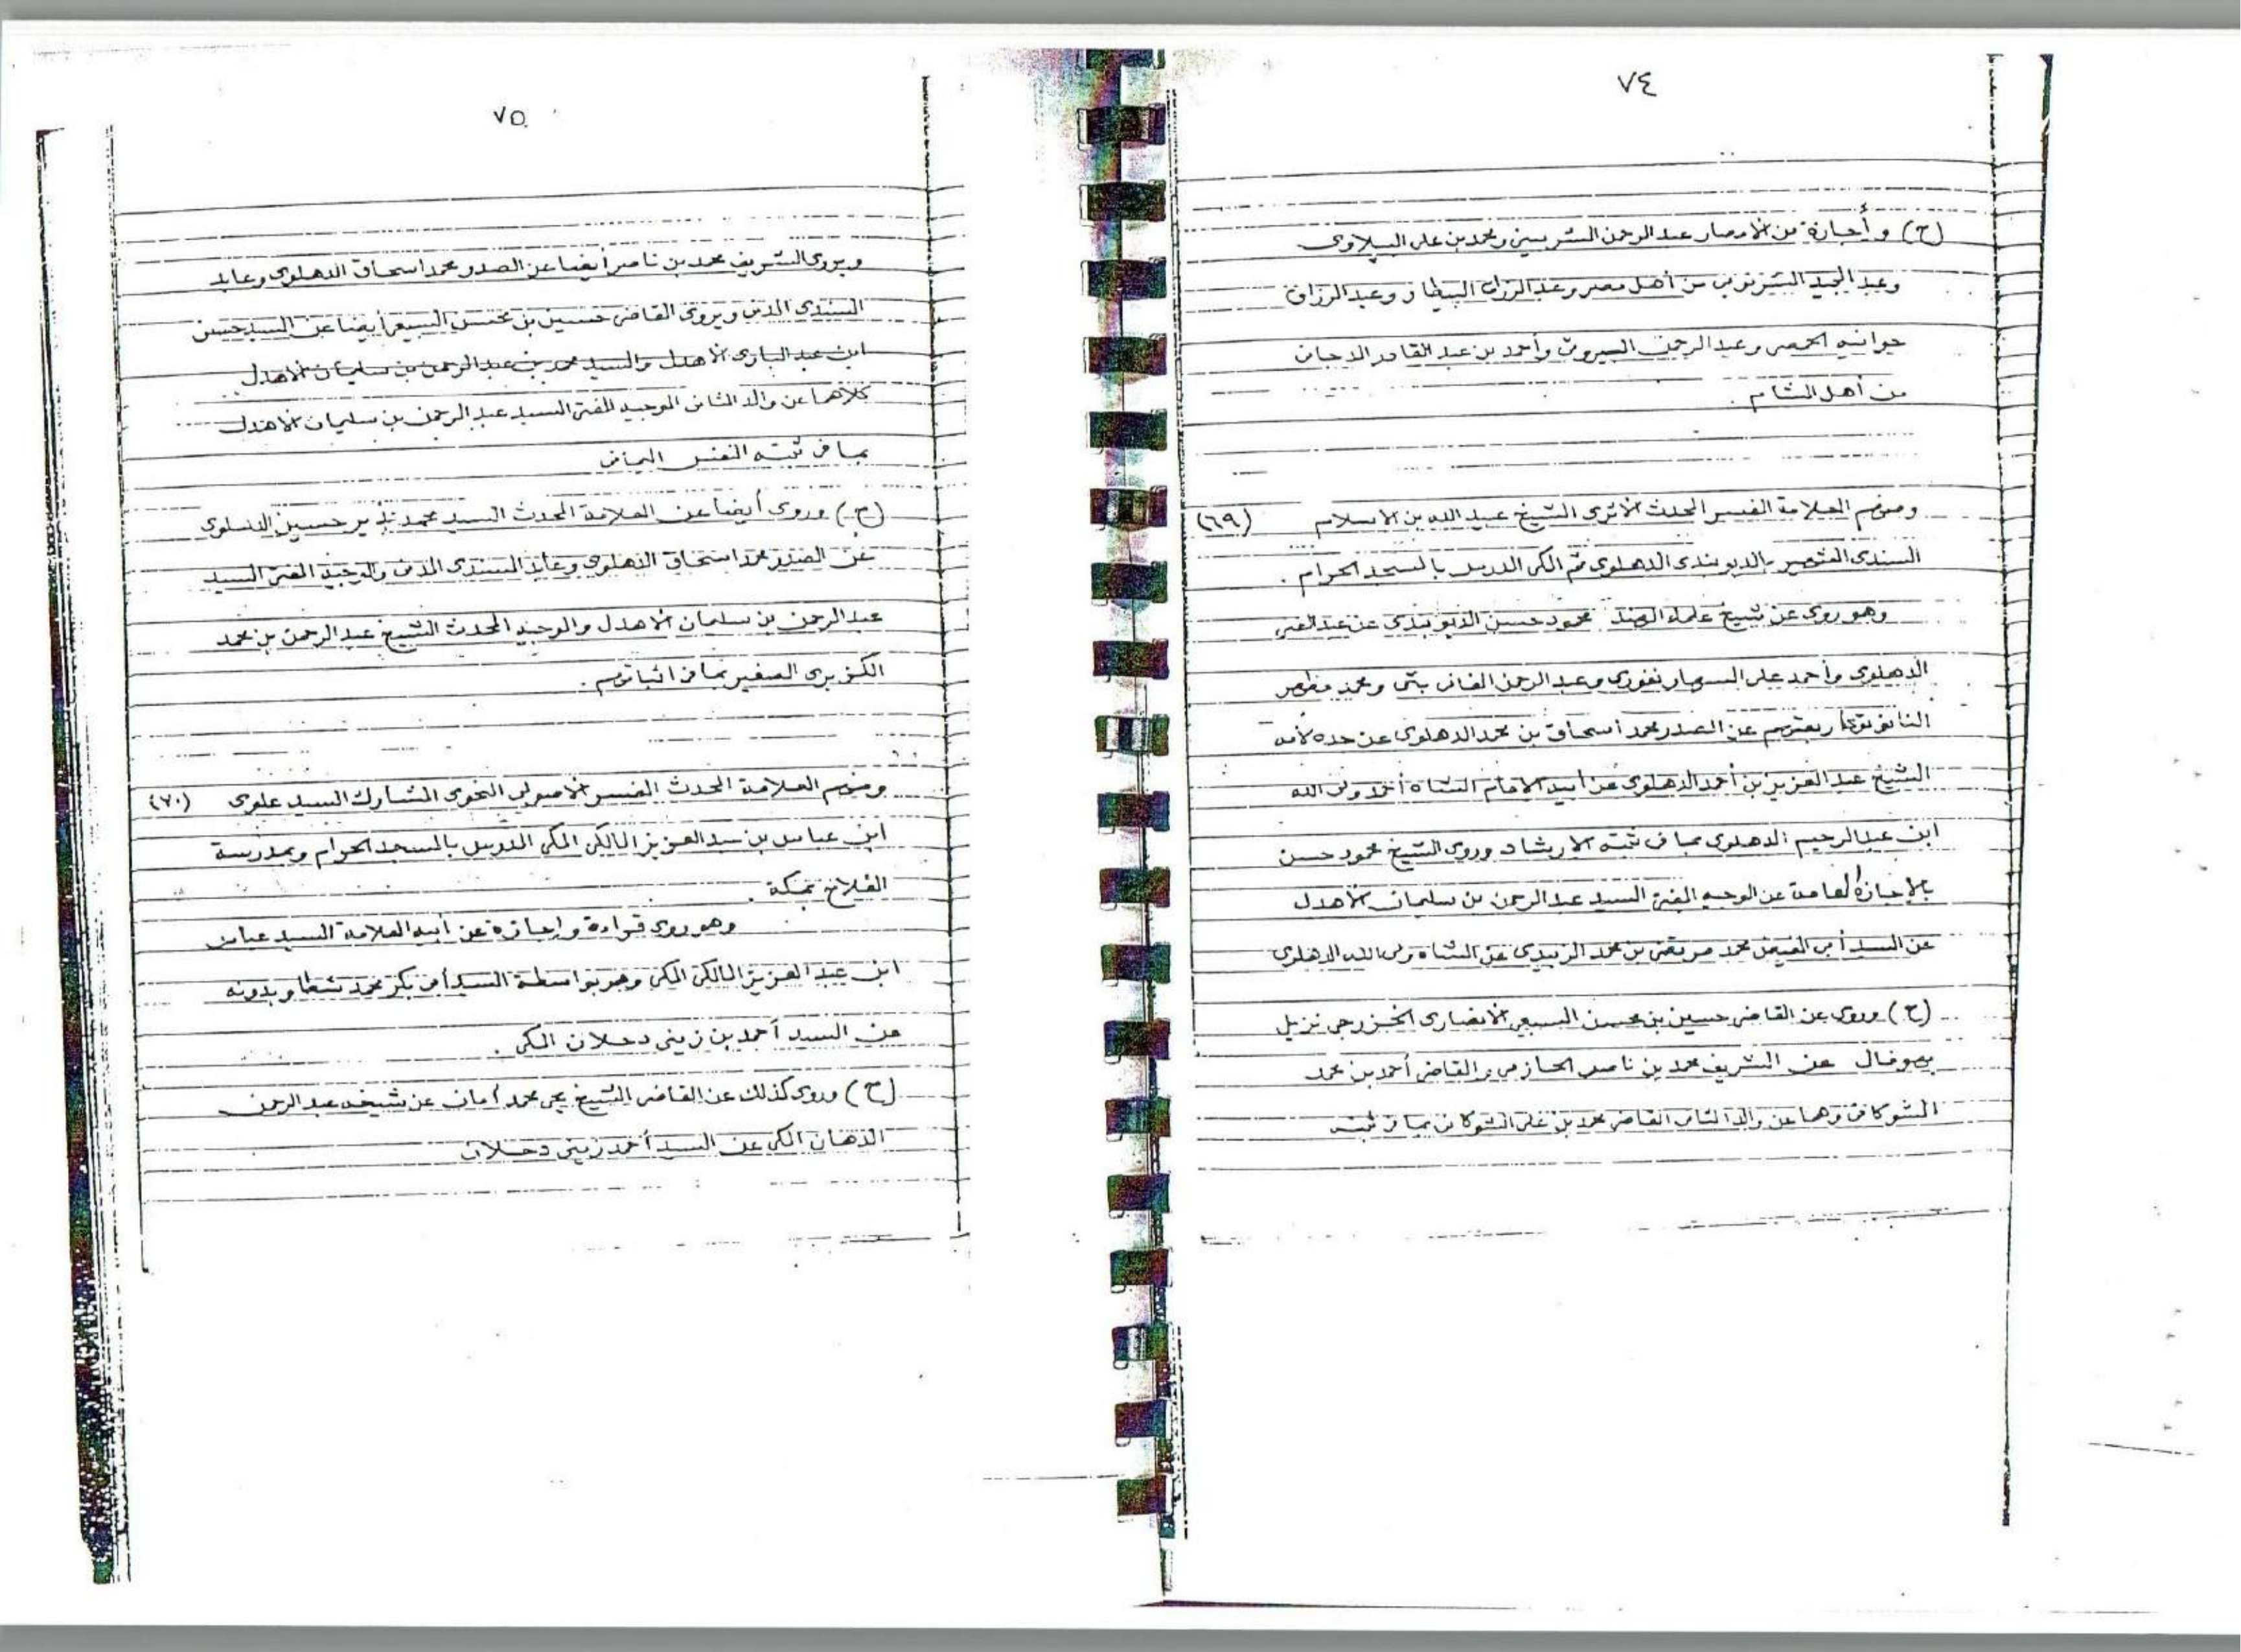 ٧٤
(ح) وأجازه من الأمصار عبد الرحمن الشربيني ومحمد بن علي الببلاوي
وعبد المجيد الشرنوبي من أهل مصر وعبد الرزاق البيطار وعبد الرزاق
الحمصي وعبد الرحمن وأحمد بن عبد القادر
من أهل الشام .
ومنهم العلامة المفسر المحدث الأثري الشيخ عبيد الله بن الاسلام (٦٩)
السندي الشهير بالديوبندي الدهلوي ثم المكي المدرس بالمسجد الحرام .
وهو روى عن شيخ علماء الهند محمود حسن الديوبندي عن عبد الغني
الدهلوي وأحمد علي السهارنفوري وعبد الرحمن الفاني بتي ومحمد مظهر
النانوتوي أربعتهم عن الصدر محمد اسحاق بن محمد الدهلوي عن جده لأمه
الشيخ عبد العزيز بن أحمد الدهلوي عن أبيه الامام الشاه أحمد ولي الله
ابن عبد الرحيم الدهلوي بما في ثبته الارشاد وروى الشيخ محمود حسن
بالإجازة العامة عن الوجيه المفتي السيد عبد الرحمن بن سليمان الأهدل
عن السيد أبي الفيض محمد مرتضى بن محمد الزبيدي عن الشاه ولي الله الدهلوي
(ح) وروى عن القاضي حسين بن محسن السبعي الأنصاري الخزرجي نزيل
بهوفال عن الشريف محمد بن ناصر الحازمي والقاضي أحمد بن محمد
الشوكاني وهما عن والد الثاني القاضي محمد بن علي الشوكاني بما في ثبته
٧٥
ويروي الشريف محمد بن ناصر أيضا عن الصدر محمد اسحاق الدهلوي وعابد
السندي المدني ويروي القاضي حسين بن محسن السبعي أيضا عن السيد حسن
ابن عبد الباري الأهدل والسيد محمد بن عبد الرحمن بن سليمان الأهدل
كلاهما عن والد الثاني الوجيه المفتي السيد عبد الرحمن بن سليمان الأهدل
بما في ثبته النفس اليماني
(ح) وروى أيضا عن العلامة المحدث السيد محمد نذير حسين الدهلوي
عن الصدر محمد اسحاق الدهلوي وعابد السندي المدني والوجيه المفتي السيد
عبد الرحمن بن سليمان الأهدل والوجيه المحدث الشيخ عبد الرحمن بن محمد
الكزبري الصغير بما في اثباتهم .
ومنهم العلامة المحدث المفسر الأصولي النحوي المشارك السيد علوي (٧٠)
ابن عباس بن عبد العزيز المالكي المكي المدرس بالمسجد الحرام وبمدرسة
الفلاح بمكة .
وهو روى قراءة وإجازة عن أبيه العلامة السيد عباس
ابن عبد العزيز المالكي المكي وهو بواسطة السيد أبي بكر محمد شطا وبدونه
عن السيد أحمد بن زيني دحلان المكي .
(ح) وروى كذلك عن القاضي الشيخ يحي محمد أمان عن شيخه عبد الرحمن
الدهان المكي عن السيد أحمد زيني دحلان